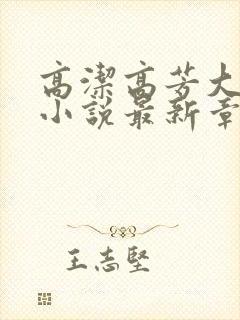 高潔高芳大
小說最新章
王志堅